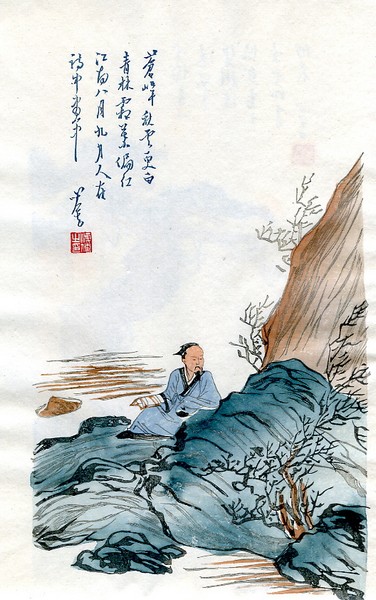 蒼峰秋雲更白
青林霜葉偏紅
江南八月九月人在
詩中畫中
心畬